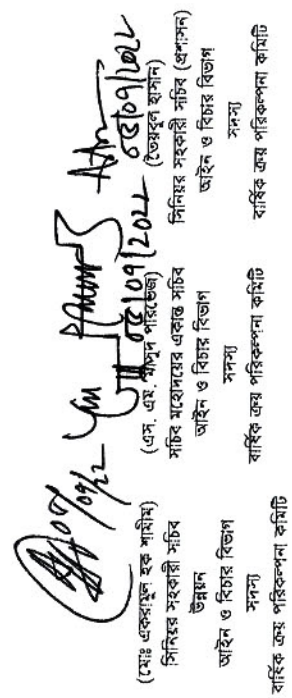 ০৬/০৭/২২
(মোঃ একরামুল হক শামীম)
সিনিয়র সহকারী সচিব
উন্নয়ন
আইন ও বিচার বিভাগ
সদস্য
বার্ষিক ক্রয় পরিকল্পনা কমিটি
০৫/০৭/২০২২
(এস. এম. মাসুদ পারভেজ)
সচিব মহোদয়ের একান্ত সচিব
আইন ও বিচার বিভাগ
সদস্য
বার্ষিক ক্রয় পরিকল্পনা কমিটি
০৫/০৭/২০২২
(তৈয়বুল হাসান)
সিনিয়র সহকারী সচিব (প্রশাসন)
আইন ও বিচার বিভাগ
সদস্য
বার্ষিক ক্রয় পরিকল্পনা কমিটি